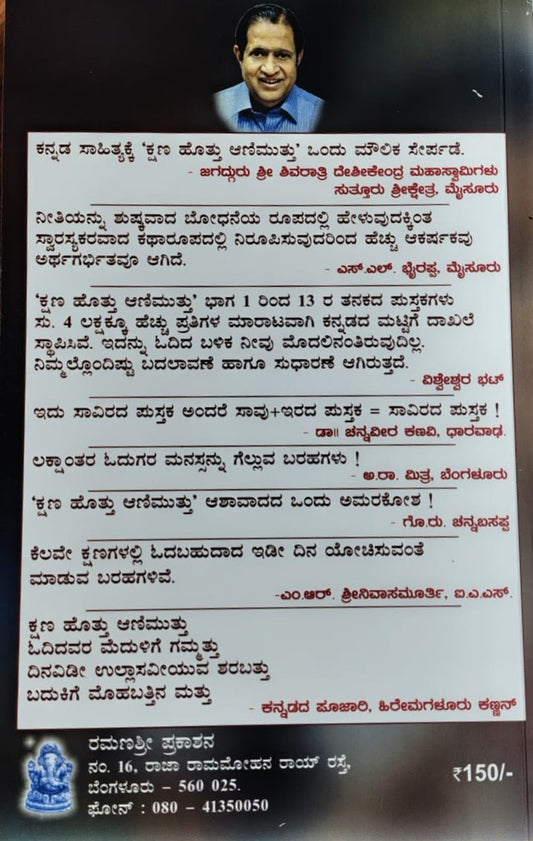 ಕನ್ನಡ ಸಾಹಿತ್ಯಕ್ಕೆ 'ಕ್ಷಣ ಹೊತ್ತು ಆಣಿಮುತ್ತು' ಒಂದು ಮೌಲಿಕ ಸೇರ್ಪಡೆ.
- ಜಗದ್ಗುರು ಶ್ರೀ ಶಿವರಾತ್ರಿ ದೇಶೀಕೇಂದ್ರ ಮಹಾಸ್ವಾಮಿಗಳು
ಸುತ್ತೂರು ಶ್ರೀಕ್ಷೇತ್ರ, ಮೈಸೂರು
ನೀತಿಯನ್ನು ಶುಷ್ಕವಾದ ಬೋಧನೆಯ ರೂಪದಲ್ಲಿ ಹೇಳುವುದಕ್ಕಿಂತ
ಸ್ವಾರಸ್ಯಕರವಾದ ಕಥಾರೂಪದಲ್ಲಿ ನಿರೂಪಿಸುವುದರಿಂದ ಹೆಚ್ಚು ಆಕರ್ಷಕವು
ಅರ್ಥಗರ್ಭಿತವೂ ಆಗಿದೆ.
- ಎಸ್.ಎಲ್. ಭೈರಪ್ಪ, ಮೈಸೂರು
'ಕ್ಷಣ ಹೊತ್ತು ಆಣಿಮುತ್ತು' ಭಾಗ 1 ರಿಂದ 13 ರ ತನಕದ ಪುಸ್ತಕಗಳು
ಸು. 4 ಲಕ್ಷಕ್ಕೂ ಹೆಚ್ಚು ಪ್ರತಿಗಳ ಮಾರಾಟವಾಗಿ ಕನ್ನಡದ ಮಟ್ಟಿಗೆ ದಾಖಲೆ
ಸ್ಥಾಪಿಸಿವೆ. ಇದನ್ನು ಓದಿದ ಬಳಿಕ ನೀವು ಮೊದಲಿನಂತಿರುವುದಿಲ್ಲ.
ನಿಮ್ಮಲ್ಲೊಂದಿಷ್ಟು ಬದಲಾವಣೆ ಹಾಗೂ ಸುಧಾರಣೆ ಆಗಿರುತ್ತದೆ.
- ವಿಶ್ವೇಶ್ವರ ಭಟ್
ಇದು ಸಾವಿರದ ಪುಸ್ತಕ ಅಂದರೆ ಸಾವು+ಇರದ ಪುಸ್ತಕ = ಸಾವಿರದ ಪುಸ್ತಕ !
- ಡಾ॥ ಚನ್ನವೀರ ಕಣವಿ, ಧಾರವಾಢ.
ಲಕ್ಷಾಂತರ ಓದುಗರ ಮನಸ್ಸನ್ನು ಗೆಲ್ಲುವ ಬರಹಗಳು !
- ಅ.ರಾ. ಮಿತ್ರ, ಬೆಂಗಳೂರು
'ಕ್ಷಣ ಹೊತ್ತು ಆಣಿಮುತ್ತು' ಆಶಾವಾದದ ಒಂದು ಅಮರಕೋಶ !
- ಗೊ.ರು. ಚನ್ನಬಸಪ್ಪ
ಕೆಲವೇ ಕ್ಷಣಗಳಲ್ಲಿ ಓದಬಹುದಾದ ಇಡೀ ದಿನ ಯೋಚಿಸುವಂತೆ
ಮಾಡುವ ಬರಹಗಳಿವೆ.
-ಎಂ.ಆರ್. ಶ್ರೀನಿವಾಸಮೂರ್ತಿ, ಐ.ಎ.ಎಸ್.
ಕ್ಷಣ ಹೊತ್ತು ಆಣಿಮುತ್ತು
ಓದಿದವರ ಮೆದುಳಿಗೆ ಗಮ್ಮತ್ತು
ದಿನವಿಡೀ ಉಲ್ಲಾಸವೀಯುವ ಶರಬತ್ತು
ಬದುಕಿಗೆ ಮೊಹಬತ್ತಿನ ಮತ್ತು
- ಕನ್ನಡದ ಪೂಜಾರಿ, ಹಿರೇಮಗಳೂರು ಕಣ್ಣನ್
ರಮಣಶ್ರೀ ಪ್ರಕಾಶನ
ನಂ. 16, ರಾಜಾ ರಾಮಮೋಹನ ರಾಯ್ ರಸ್ತೆ,
ಬೆಂಗಳೂರು – 560 025.
ಫೋನ್ : 080 – 41350050
₹150/-